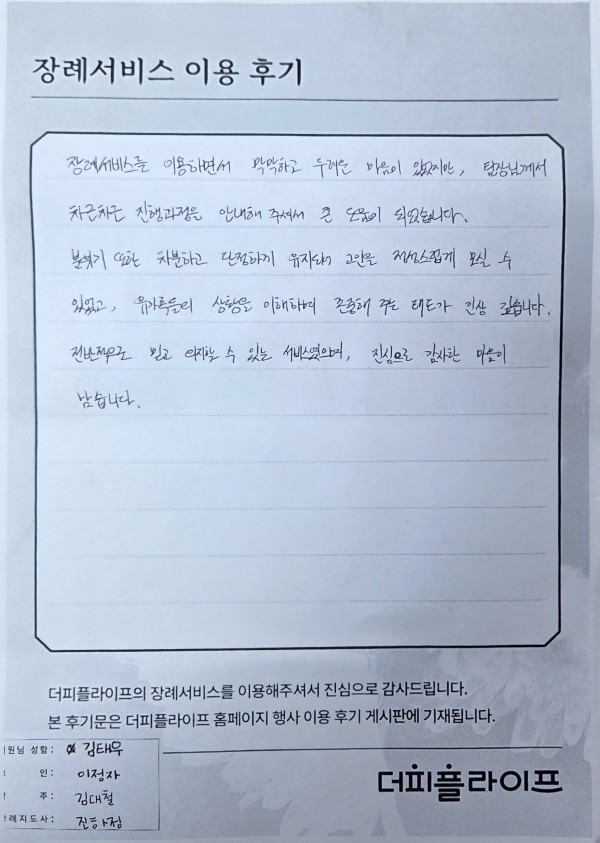 장례서비스 이용 후기
장례서비스를 이용하면서 막막하고 두려운 마음이 있었지만, 팀장님께서
차근차근 진행과정을 안내해 주셔서 큰 도움이 되었습니다.
분위기 또한 차분하고 단정하게 유지되어 고인을 정성스럽게 모실 수
있었고, 유가족들의 상황을 이해하며 존중해 주는 태도가 인상 깊습니다.
전반적으로 믿고 의지할 수 있는 서비스였으며, 진심으로 감사한 마음이
남습니다.
더피플라이프의 장례서비스를 이용해주셔서 진심으로 감사드립니다.
본 후기문은 더피플라이프 홈페이지 행사 이용 후기 게시판에 기재됩니다.
원님 성함: 김태우
인: 이정자
주: 김대철
례지도사: 진하정
더피플라이프